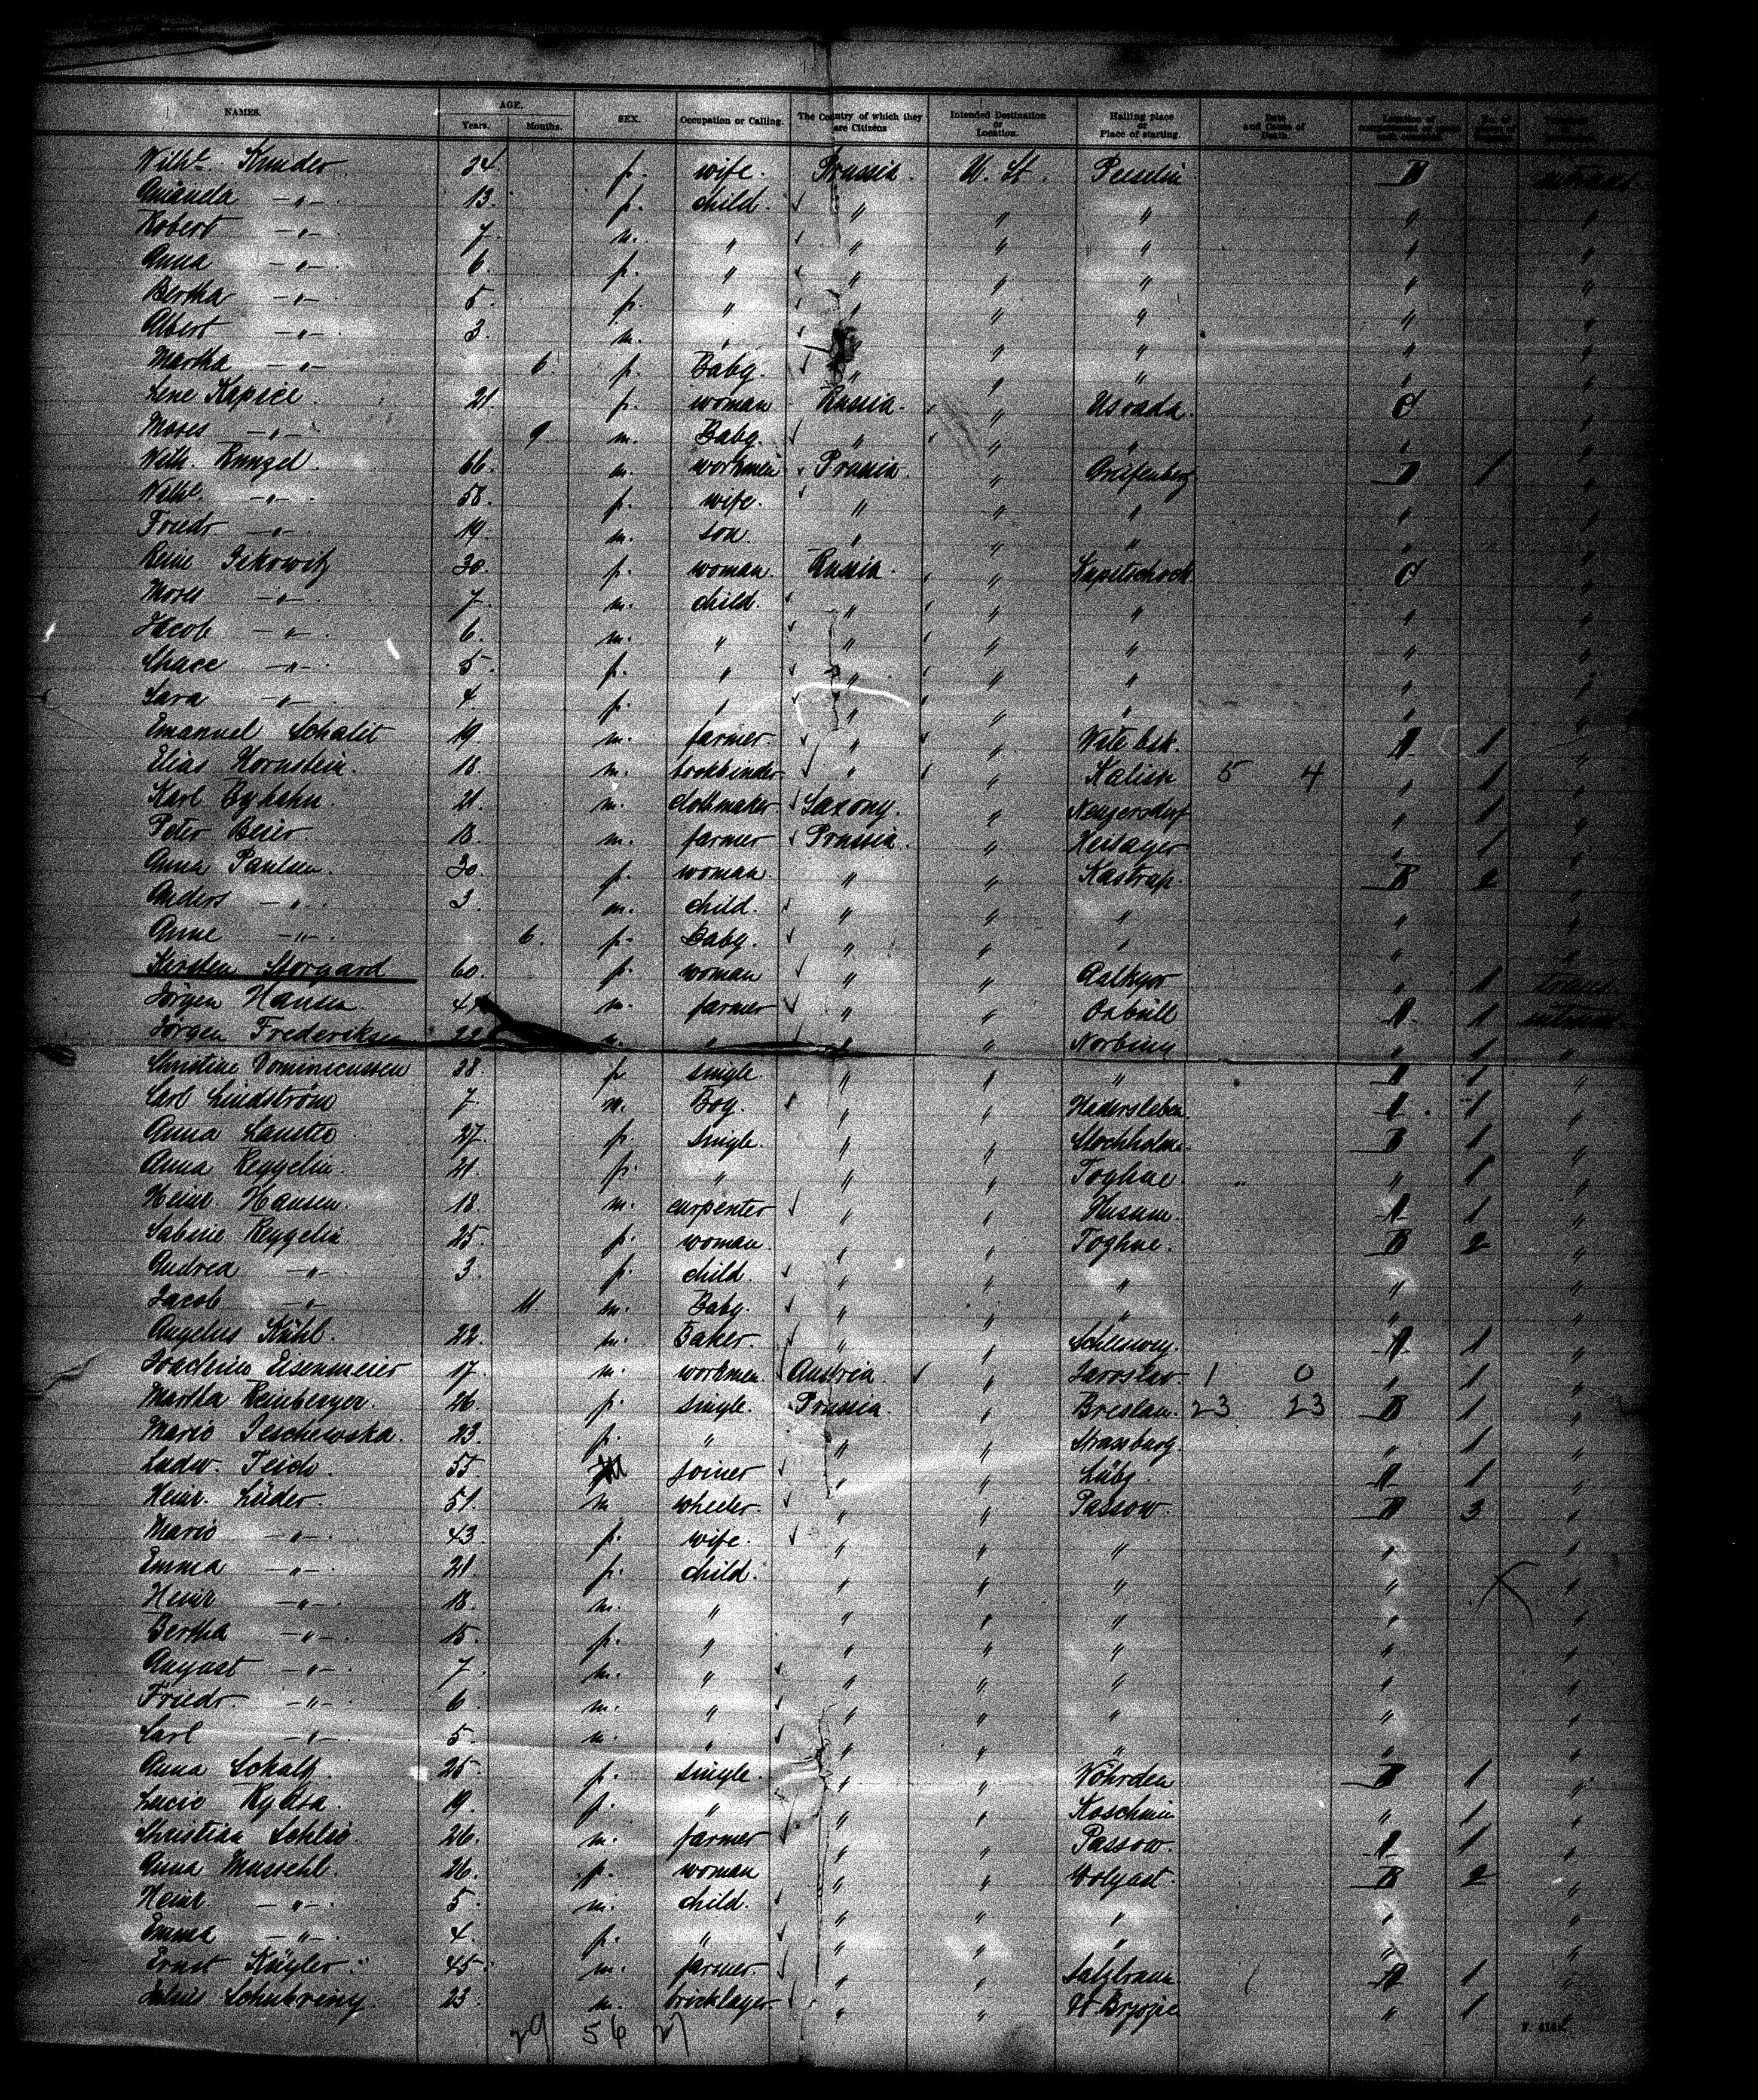 NAMES. AGE. SEX. Occupation or Calling. The Country of which they are Citizens Intended Destination or Location. Hailing place or Place of starting. Date and Cause of Death Location of
Years. Months.
Wilhe. 34. f. wife. Prussia. U. St. B
Amanda -"- 13. f. child. " " " " "
Robert -"- 7. m. " " " " " "
Anna -"- 6. f. " " " " " "
Bertha -"- 5. f. " " " " " "
Albert -"- 3. m. " " " " " "
Martha -"- 6. f. Baby. " " " " "
Lene Kapice 21. f. woman Russia. " C "
Moses -"- 9. m. Baby. " " " " "
Wilh. Runzel. 66. m. workmen Prussia. " Greifenberg B 1 "
Wilhe. -"- 58. f. wife. " " " " "
Friedr -"- 19. m. son. " " " " "
30. f. woman. Russia. " C "
Moses -"- 7. m. child. " " " " "
Jacob -"- 6. m. " " " " " "
Chaee -"- 5. f. " " " " " "
Sara -"- 4. f. " " " " " "
Emanuel Schalit 19. m. farmer. " " Witebsk. A 1 "
Elias Hornstein. 18. m. bookbinder " " Kalisch 5 4 " 1 "
Karl 21. m. clothmaker Saxony. " Neugersdorf " 1 "
Peter Beier 18. m. farmer Prussia. " " 1 "
Anna Paulsen. 30. f. woman. " " Kastrap. B 2 "
Anders -"- 3. m. child. " " " " "
Anne -"- 6. f. Baby. " " " " "
Kirsten Storgard 60. f. woman " " " 1
Jörgen Hansen. m. farmer " " Oxbüll A 1
Jörgen Frederiksen 22. m. " " " " 1 "
Christine Dominicussen 28. f. single. " " " B 1 "
Carl Lindström 7. m. Boy. " " Hadersleben. A 1 "
Anna 27. f. single. " " Stockholm. B 1 "
Anna Reggelin. 21. f. " " " " 1 "
Heinr. Hansen. 18. m. carpenter " " Husum. A 1 "
Sabine Reggelin 25. f. woman. " " B 2 "
Andrea -"- 3. f. child. " " " " "
Jacob -"- 11. m. Baby. " " " " "
Angelus Kühl. 22. m. Baker. " " Schleswig. A 1 "
Joachim Eisenmeier 17. m. workmen. Austria. " Jaroslav. 1 0 " 1 "
Martha Reinberger. 26. f. single. Prussia. " Breslau. 23 23 B 1 "
Marie Jeschewska. 23. f. " " " Strassburg. " 1 "
Ludw. Tesch. 55. M joiner " " Lübz. A 1 "
Heinr. Lüder. 51. m wheeler. " " Passow. B 3 "
Marie -"- 43. f. wife. " " " " "
Emma -"- 21. f. child. " " " " "
Heinr -"- 18. m. " " " " " "
Bertha -"- 15. f. " " " " " "
August -"- 7. m. " " " " " "
Friedr. -"- 6. m. " " " " " "
Carl -"- 5. m. " " " " " "
Anna 25. f. single. " " Wöhrden B 1 "
Lucie 19. f. " " " Koschmin " 1 "
Christian Schlie. 26. m. farmer " " Passow. A 1 "
Anna Massehl. 26. f. woman " " Wolgast. B 2 "
Heinr. -"- 5. m. child. " " " " "
Emma -"- 4. f. " " " " " "
Ernst Kügler. 45. m. farmer. " " Salzbrunn A 1 "
Julius Schubring. 23. m. bricklager. " " " 1
29 56 27